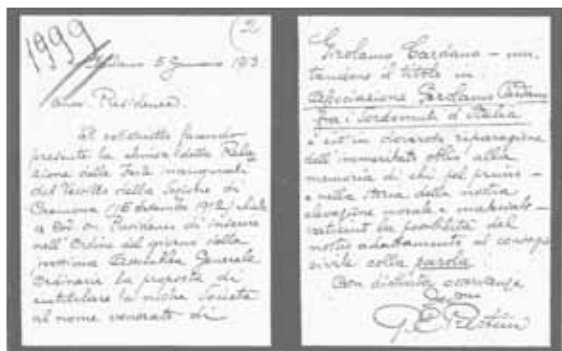 1999
(2
Milano 5 Gennaio 1913
Onor. Presidenza.
Il sottoscritto facendo
presente la chiusa della Rela
zione delle Feste inaugurali
del Vessillo della Sezione di
Cremona (15 settembre 1912) chiede
a cod. on. Presidenza di inserire
nell'Ordine del giorno della
prossima Assemblea Generale
Ordinaria la proposta di
intitolare la nostra Società
al nome venerato di
Girolamo Cardano — mu-
tandone il titolo in
Associazione Gerolamo Cardano
fra i Sordomuti d'Italia
e ciò in doverosa riparazione
dell'immeritato oblio alla
memoria di chi pel primo —
e nella storia della nostra
elevazione morale e materiale —
la possibilità del
nostro adattamento al consorzio
civile colla parola
Con distinta osservanza
G. E. Prestini